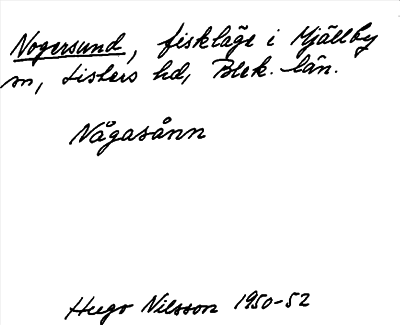 Nogersund, fiskläge i Mjällby
sn, Listers hd, Blek. län.
Någasånn
Hugo Nilsson 1950-52